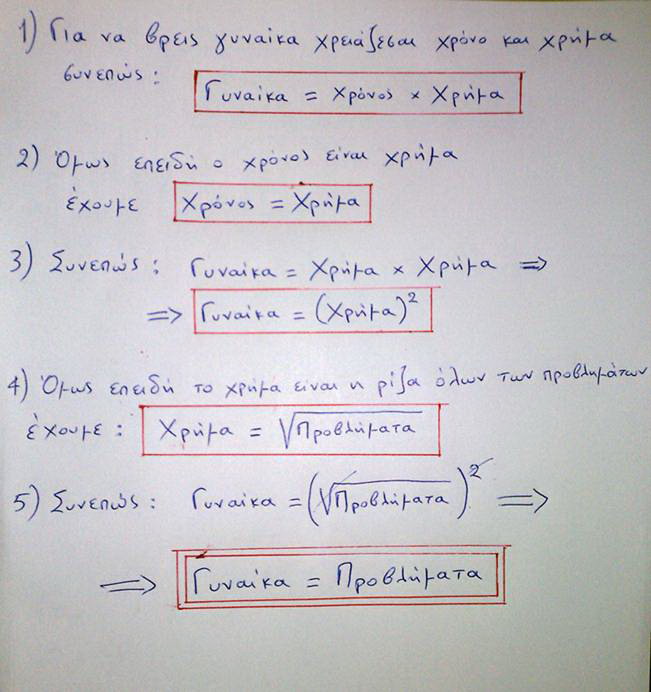 1) Για να βρεις γυναίκα χρειάζεσαι χρόνο και χρήμα
συνεπώς : Γυναίκα = Χρόνος × Χρήμα
2) Όμως επειδή ο χρόνος είναι χρήμα
έχουμε Χρόνος = Χρήμα
3) Συνεπώς : Γυναίκα = Χρήμα × Χρήμα ⇒
⇒ Γυναίκα = (Χρήμα)²
4) Όμως επειδή το χρήμα είναι η ρίζα όλων των προβλημάτων
έχουμε : Χρήμα = √Προβλήματα
5) Συνεπώς : Γυναίκα = (√Προβλήματα)² ⇒
⇒ Γυναίκα = Προβλήματα